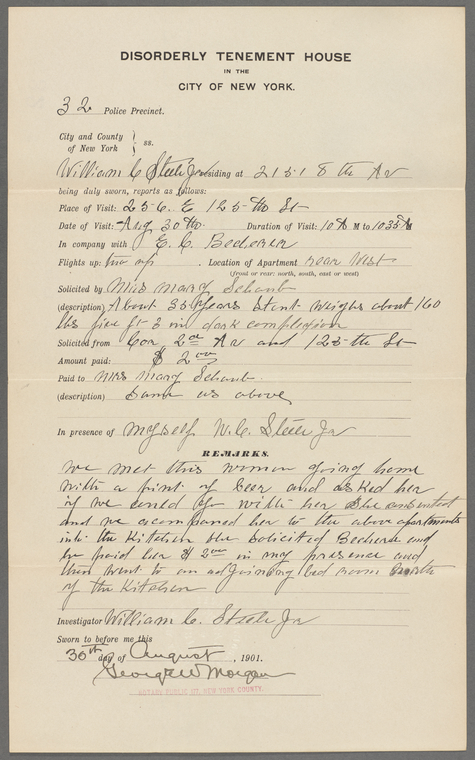 DISORDERLY TENEMENT HOUSE
IN THE
CITY OF NEW YORK.
32 Police Precinct.
City and County
of New York } ss.
William C Steele Jr residing at 2151 8th Av
being duly sworn, reports as follows:
Place of Visit: 256. E 125th St
Date of Visit: Aug 30th Duration of Visit: 10 A M to 1035 A M
In company with E. C. Becherer
Flights up: two up. Location of Apartment rear West
(front or rear: north, south, east or west)
Solicited by Miss Mary Schaub
(description) About 35 years Stout weighs about 160
lbs five ft 3 in dark complexion
Solicited from Cor 2nd Av and 125th St
Amount paid: $ 2.00
Paid to Miss Mary Schaub.
(description) Same as above
In presence of myself W.C. Steele Jr
REMARKS.
We met this woman going home
with a pint of beer and asked her
if we could go with her She consented
and we accompanied her to the above apartments
into the Kitchen She Solicited Becherer and
he paid her $ 2.00 in my presence and
then went to an adjoining bed room
of the Kitchen
Investigator William C. Steele Jr
Sworn to before me this
30th day of August, 1901.
George W Morgan
NOTARY PUBLIC NEW YORK COUNTY.